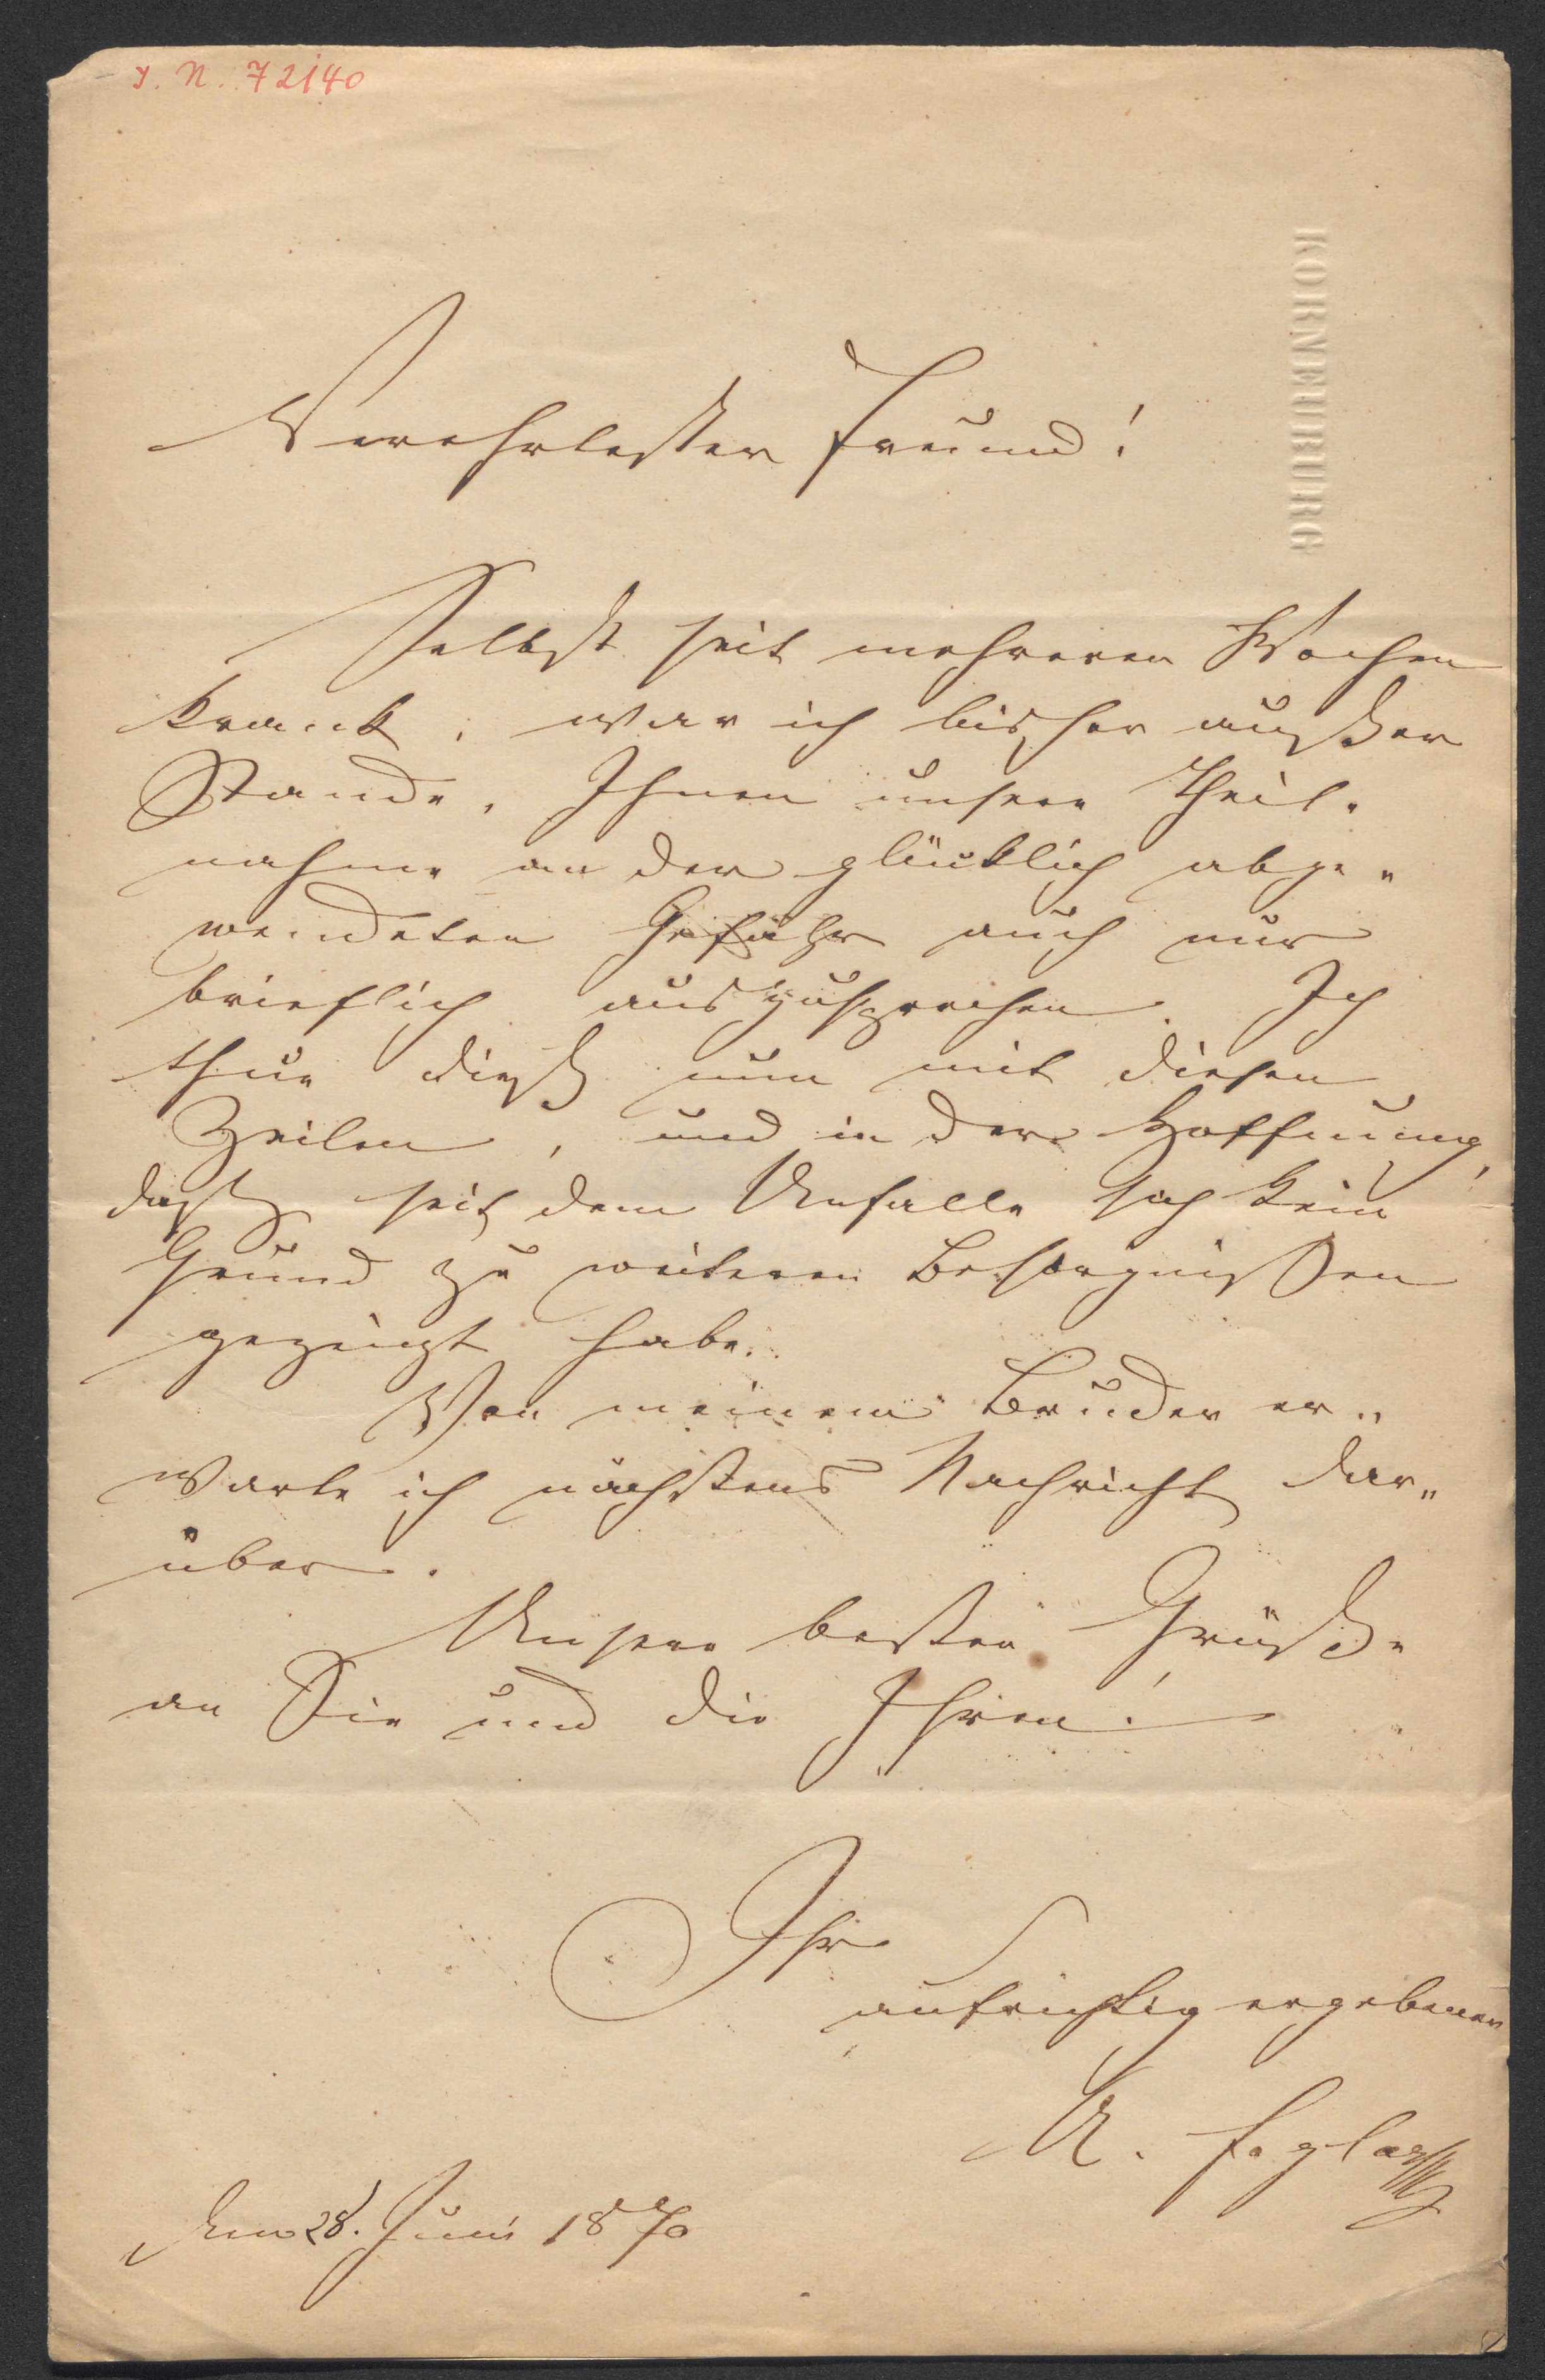 I. N. 72140
KORNEUBURG
Verehrtester Freund!
Selbst seit mehreren Wochen
krank, war ich bisher außer
Stande, Ihnen unsere Theil-
nahme an der glücklich abge-
wendeten Gefahr auch nur
brieflich auszusprechen. Ich
thue dieß nun mit diesen
Zeilen, und in der Hoffnung,
daß seit dem Unfalle sich kein
Grund zu weiteren Besorgnißen
gezeigt habe.
Von meinem Bruder er-
warte ich nächstens Nachricht dar-
über.
Unsere besten Grüße
an Sie und die Ihren!
Ihr
aufrichtig ergebener
A. Foglar
Am 28. Juni 1870